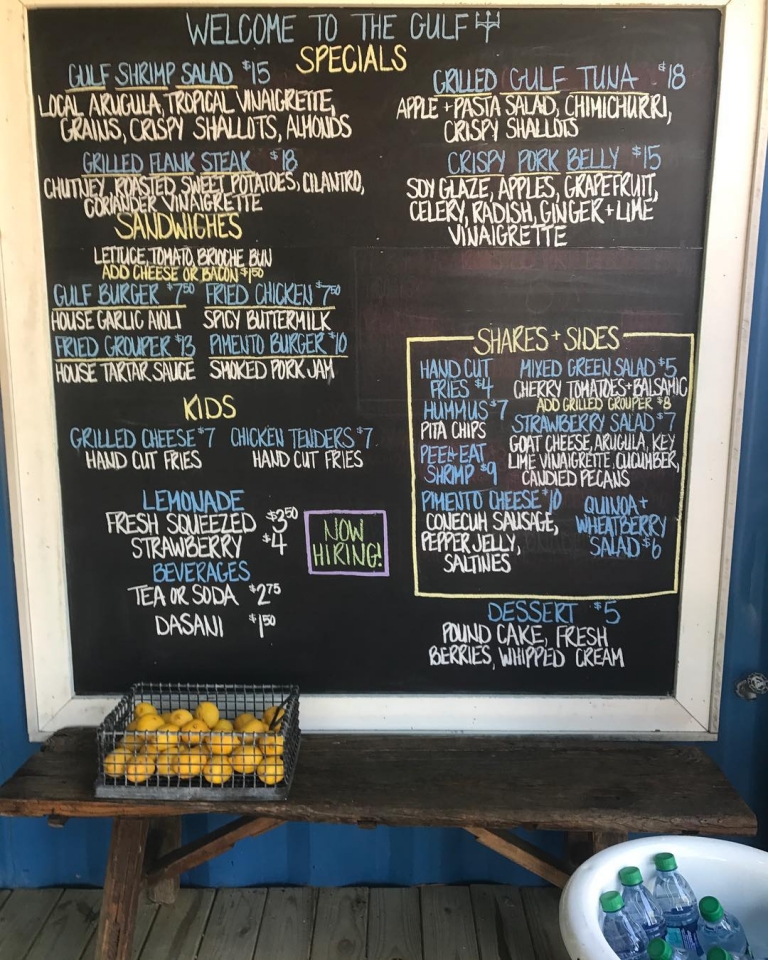 WELCOME TO THE GULF
SPECIALS
GULF SHRIMP SALAD $15
LOCAL ARUGULA, TROPICAL VINAIGRETTE,
GRAINS, CRISPY SHALLOTS, ALMONDS
GRILLED GULF TUNA $18
APPLE + PASTA SALAD, CHIMICHURRI,
CRISPY SHALLOTS
GRILLED FLANK STEAK $18
CHUTNEY, ROASTED SWEET POTATOES, CILANTRO,
CORIANDER VINAIGRETTE
CRISPY PORK BELLY $15
SOY GLAZE, APPLES, GRAPEFRUIT,
CELERY, RADISH, GINGER + LIME
VINAIGRETTE
SANDWICHES
LETTUCE, TOMATO, BRIOCHE BUN
ADD CHEESE OR BACON $1.50
GULF BURGER $7.50
HOUSE GARLIC AIOLI
FRIED CHICKEN $7.50
SPICY BUTTERMILK
FRIED GROUPER $13
HOUSE TARTAR SAUCE
PIMENTO BURGER $10
SMOKED PORK JAM
KIDS
GRILLED CHEESE $7
HAND CUT FRIES
CHICKEN TENDERS $7
HAND CUT FRIES
LEMONADE
FRESH SQUEEZED $3.50
STRAWBERRY $4
BEVERAGES
TEA OR SODA $2.75
DASANI $1.50
NOW
HIRING!
SHARES + SIDES
HAND CUT
FRIES $4
HUMMUS $7
PITA CHIPS
PEEL+EAT
SHRIMP $9
PIMENTO CHEESE $10
CONECUH SAUSAGE,
PEPPER JELLY,
SALTINES
MIXED GREEN SALAD $5
CHERRY TOMATOES + BALSAMIC
ADD GRILLED GROUPER $8
STRAWBERRY SALAD $7
GOAT CHEESE, ARUGULA, KEY
LIME VINAIGRETTE, CUCUMBER,
CANDIED PECANS
QUINOA +
WHEATBERRY
SALAD $6
DESSERT $5
POUND CAKE, FRESH
BERRIES, WHIPPED CREAM